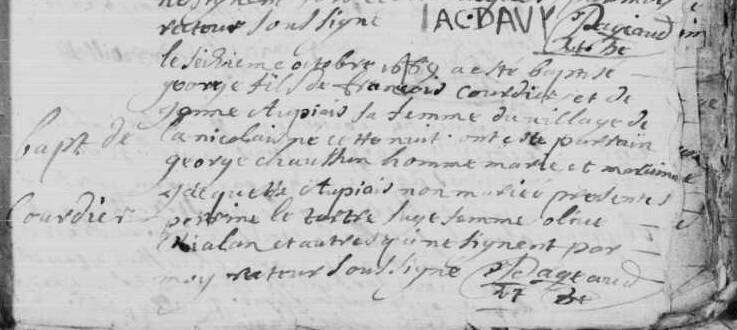 recteur soussigne IAC·DAVY P Pageaud
le seizieme octobre 1669 a esté baptise
george fils de francois Courdier et de
janne Aupiais sa femme du village de
la nicolais ne cette nuit ont este partain
george chauthin homme marie et maraine
Jacquette Aupiais non mariée presentes
perrine le tertre sage femme olive
et autres qui ne signent por
moy recteur soussigne P Pageaud
bapt de
Courdier